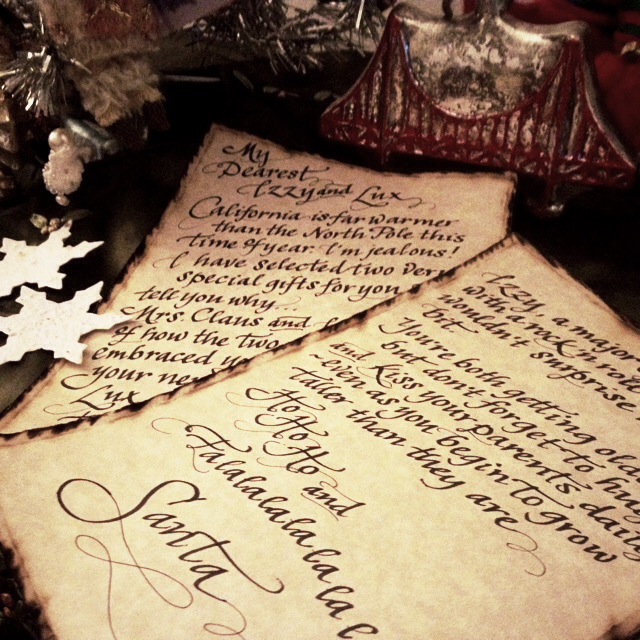 My
Dearest
Izzy and Lux
California is far warmer
than the North Pole this
time of year. I'm jealous!
I have selected two very
special gifts for you
tell you why
Mrs Claus and
of how the two
embraced
your
Lux
Key, a major
with a
wouldn't surprise
but
You're both getting
but don't forget to hug
and Kiss your parents
even as you begin to grow
taller than they are
Ho Ho
Ho Ho and
Falalalalalalalalae
Santa